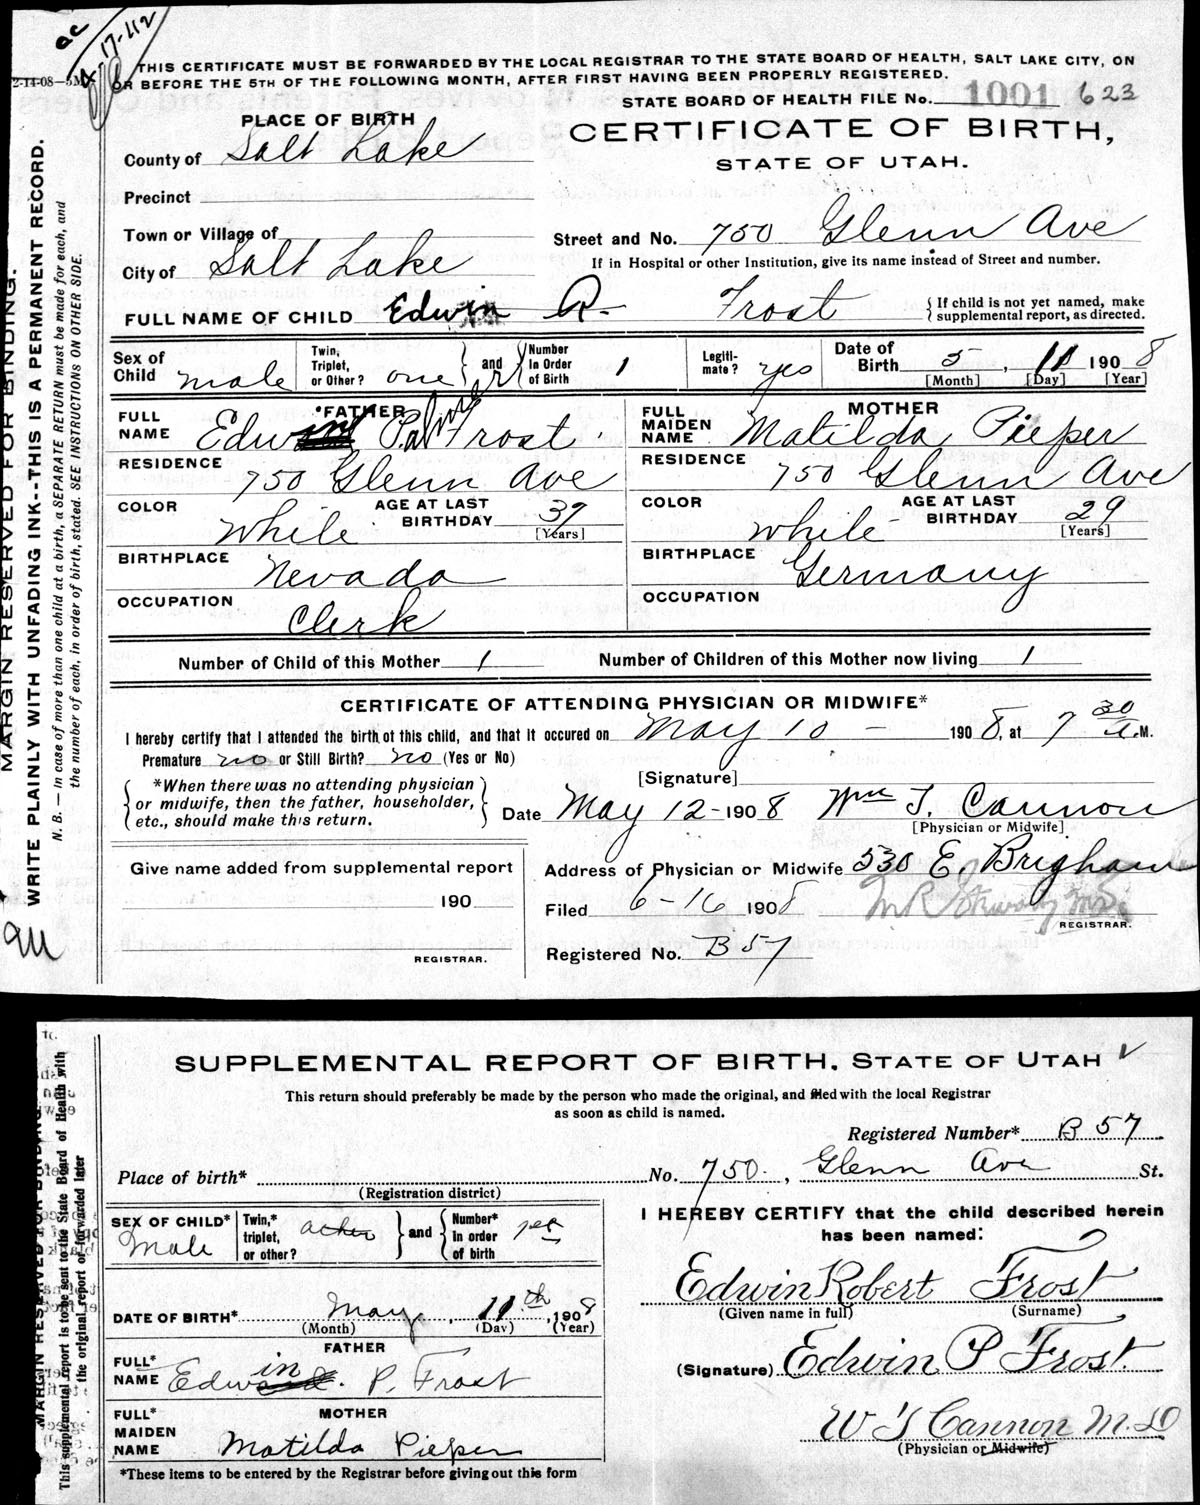 ac
17-412
2-14-08—5M
THIS CERTIFICATE MUST BE FORWARDED BY THE LOCAL REGISTRAR TO THE STATE BOARD OF HEALTH, SALT LAKE CITY, ON
OR BEFORE THE 5TH OF THE FOLLOWING MONTH, AFTER FIRST HAVING BEEN PROPERLY REGISTERED.
STATE BOARD OF HEALTH FILE No. 1001 623
PLACE OF BIRTH
CERTIFICATE OF BIRTH,
STATE OF UTAH.
County of Salt Lake
Precinct
Town or Village of
Street and No. 750 Glenn Ave
City of Salt Lake
If in Hospital or other Institution, give its name instead of Street and number.
FULL NAME OF CHILD Edwin R. Frost
{ If child is not yet named, make
supplemental report, as directed.
Sex of Child male
Twin, Triplet, or Other? one } and { Number In Order of Birth 1
Legiti-mate? yes
Date of Birth 5, 11 1908
[Month] [Day] [Year]
FATHER
FULL NAME Edwin Palmer Frost
MOTHER
FULL MAIDEN NAME Matilda Pieper
RESIDENCE 750 Glenn Ave
RESIDENCE 750 Glenn Ave
COLOR White AGE AT LAST BIRTHDAY 37 [Years]
COLOR White AGE AT LAST BIRTHDAY 29 [Years]
BIRTHPLACE Nevada
BIRTHPLACE Germany
OCCUPATION Clerk
OCCUPATION
Number of Child of this Mother 1 Number of Children of this Mother now living 1
CERTIFICATE OF ATTENDING PHYSICIAN OR MIDWIFE*
I hereby certify that I attended the birth of this child, and that it occured on May 10 - 1908, at 7 30 A.M.
Premature no or Still Birth? no (Yes or No)
[Signature]
{ *When there was no attending physician
or midwife, then the father, householder,
etc., should make this return. }
Date May 12-1908 Wm T. Cannon
[Physician or Midwife]
Give name added from supplemental report
190
REGISTRAR.
Address of Physician or Midwife 530 E. Brigham
Filed 6-16 1908
REGISTRAR.
Registered No. B 57
MARGIN RESERVED FOR BINDING.
WRITE PLAINLY WITH UNFADING INK--THIS IS A PERMANENT RECORD.
N. B. — In case of more than one child at a birth, a SEPARATE RETURN must be made for each, and
the number of each, in order of birth, stated. SEE INSTRUCTIONS ON OTHER SIDE.
SUPPLEMENTAL REPORT OF BIRTH. STATE OF UTAH
This return should preferably be made by the person who made the original, and filed with the local Registrar
as soon as child is named.
Registered Number* B 57
Place of birth* No. 750, Glenn Ave St.
(Registration district)
SEX OF CHILD* Male
Twin,* triplet, or other? } and { Number* In order of birth
I HEREBY CERTIFY that the child described herein
has been named:
Edwin Robert Frost
(Given name in full) (Surname)
DATE OF BIRTH* May, 11th, 1908
(Month) (Day) (Year)
FATHER
FULL* NAME Edwin P. Frost
(Signature) Edwin P Frost
MOTHER
FULL* MAIDEN NAME Matilda Pieper
W T Cannon M.D
(Physician or Midwife)
*These items to be entered by the Registrar before giving out this form
MARGIN RESERVED FOR BINDING.
This supplemental report is to be sent to the State Board of Health with
the original report or forwarded later